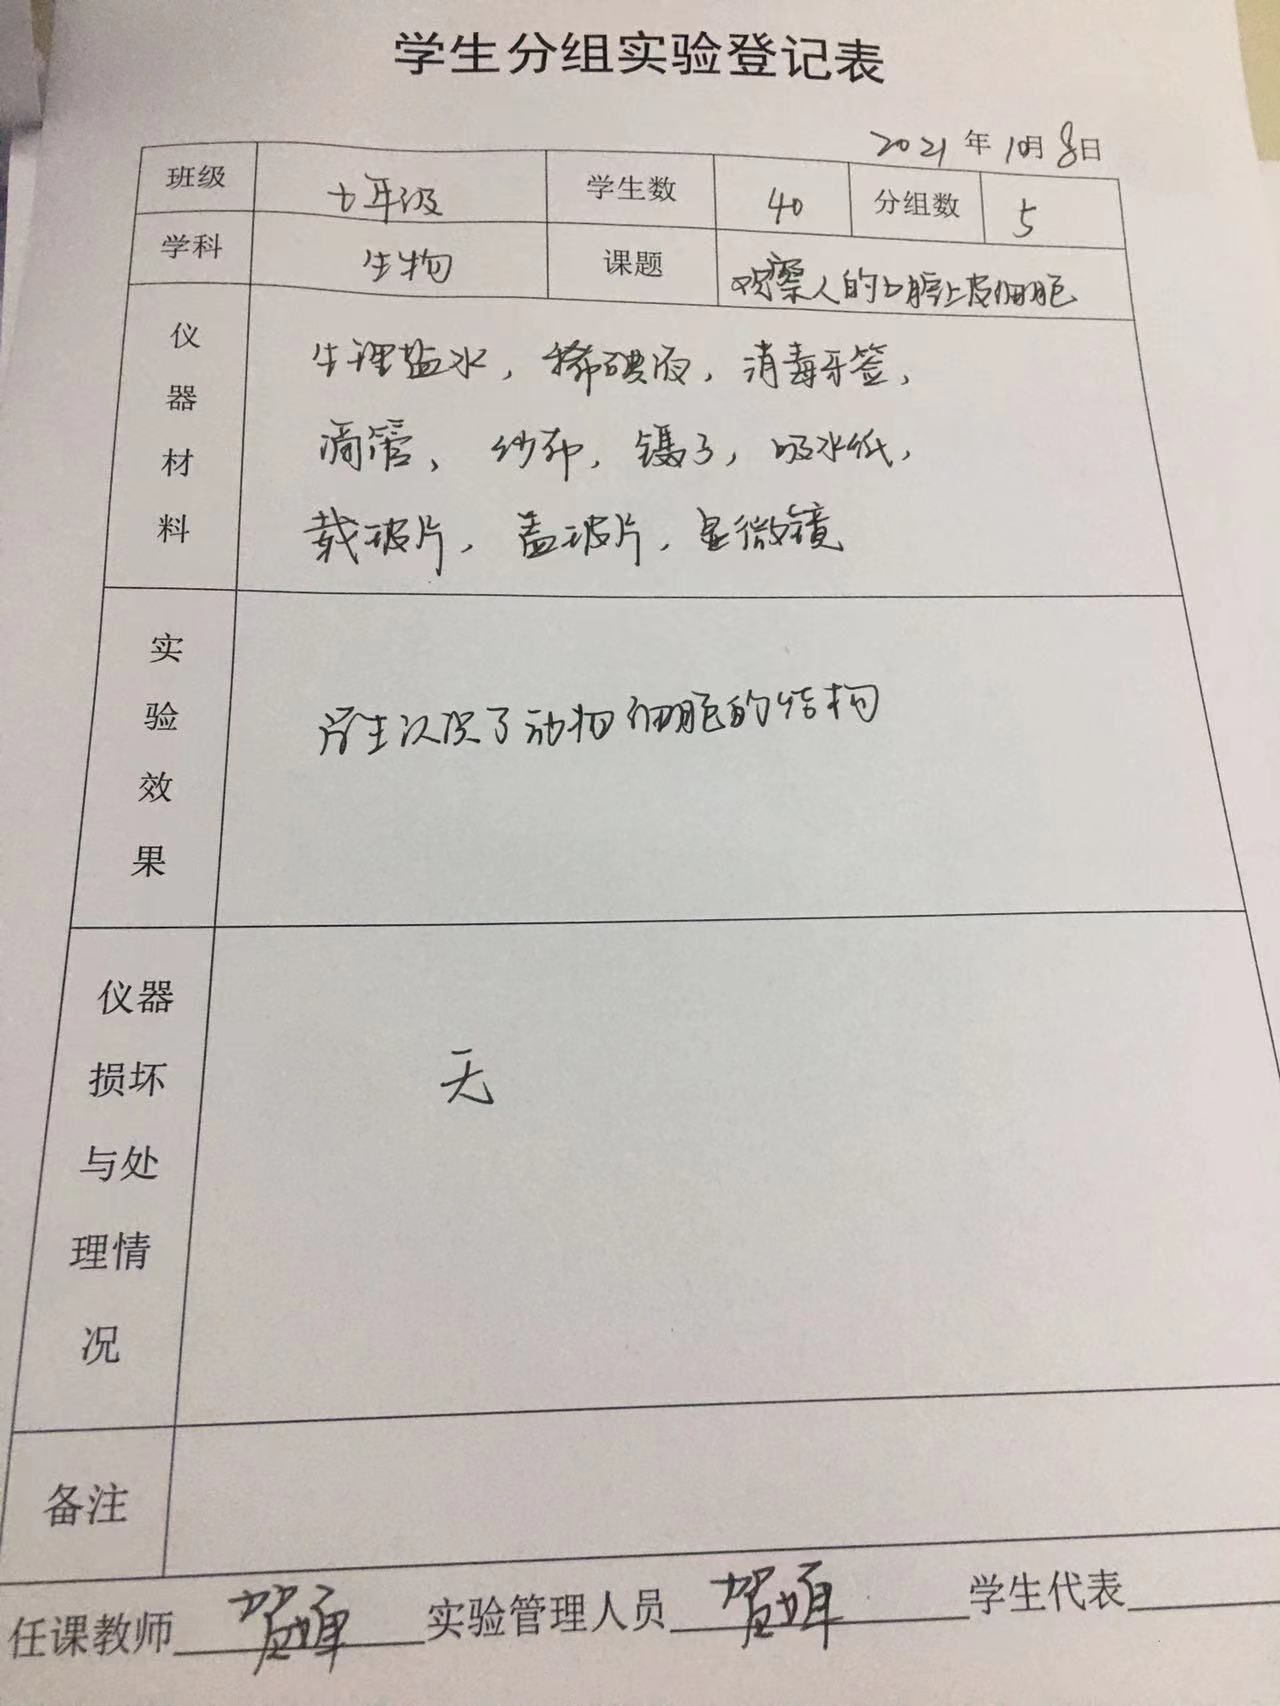 学生分组实验登记表
2021年10月8日
班级 七年级 学生数 40 分组数 5
学科 生物 课题 观察人的口腔上皮细胞
仪器材料
生理盐水，稀碘液，消毒牙签，
滴管、纱布，镊子，吸水纸，
载玻片，盖玻片，显微镜
实验效果
学生认识了动物细胞的结构
仪器损坏与处理情况
无
备注
任课教师 贺 实验管理人员 贺 学生代表